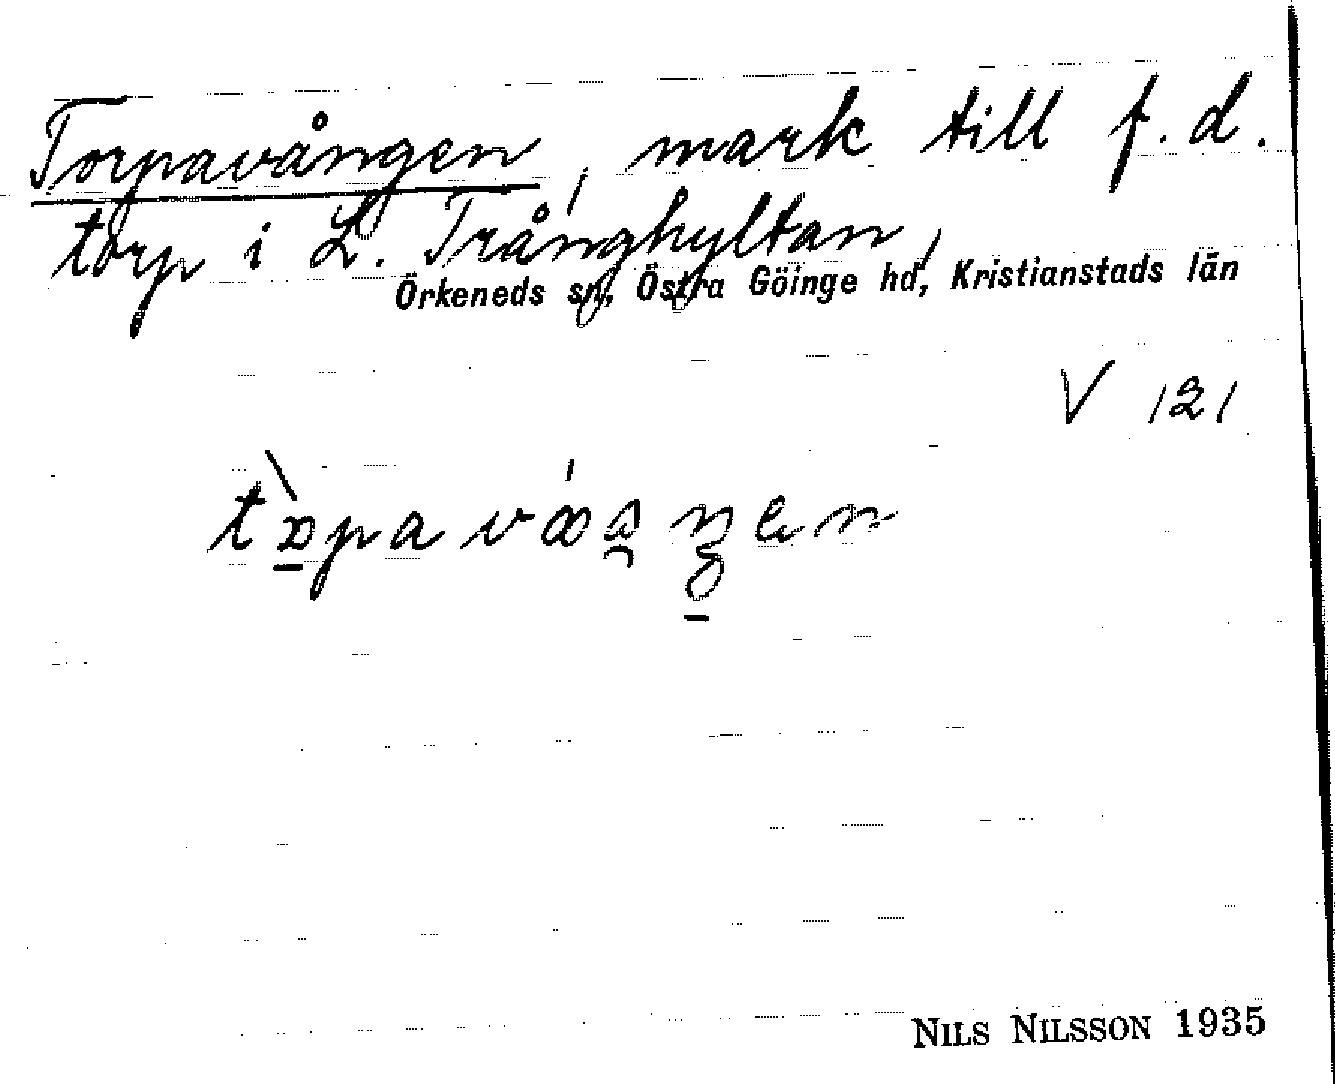 Torpavången, mark till f.d.
torp i L. Trånghyltan,
Örkeneds sn, Östra Göinge hd, Kristianstads län
V 121
NILS NILSSON 1935